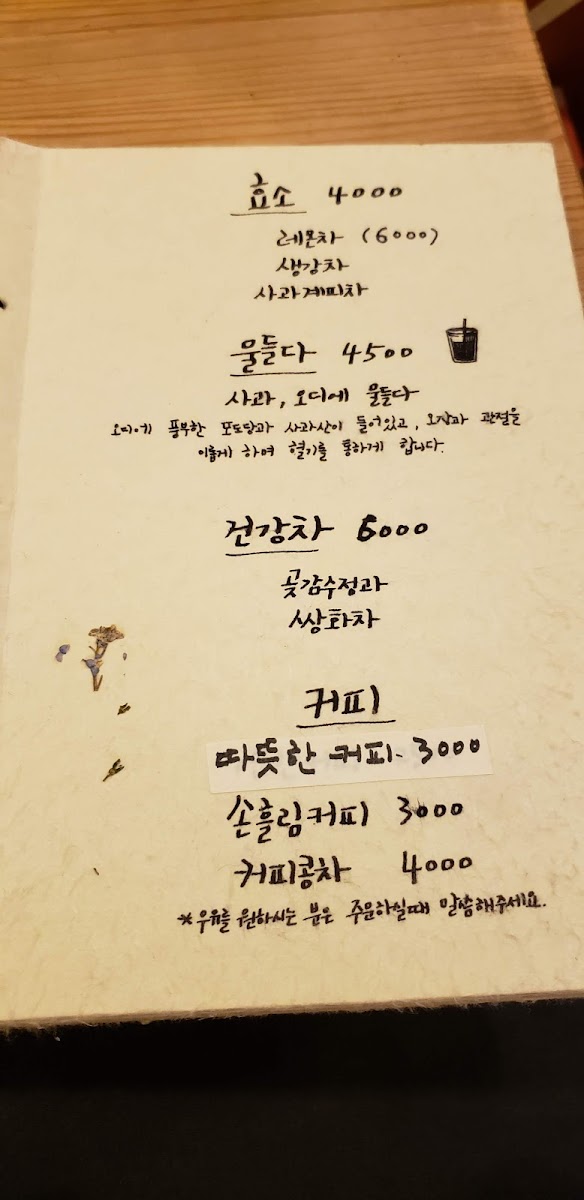 효소 4000
레몬차 (6000)
생강차
사과계피차
물들다 4500
사과, 오디에 물들다
오디에 풍부한 포도당과 사과산이 들어있고, 오장과 관절을
이롭게 하여 혈기를 통하게 합니다.
건강차 6000
곶감수정과
쌍화차
커피
따뜻한 커피. 3000
손흘림커피 3000
커피콩차 4000
*우유를 원하시는 분은 주문하실때 말씀해주세요.